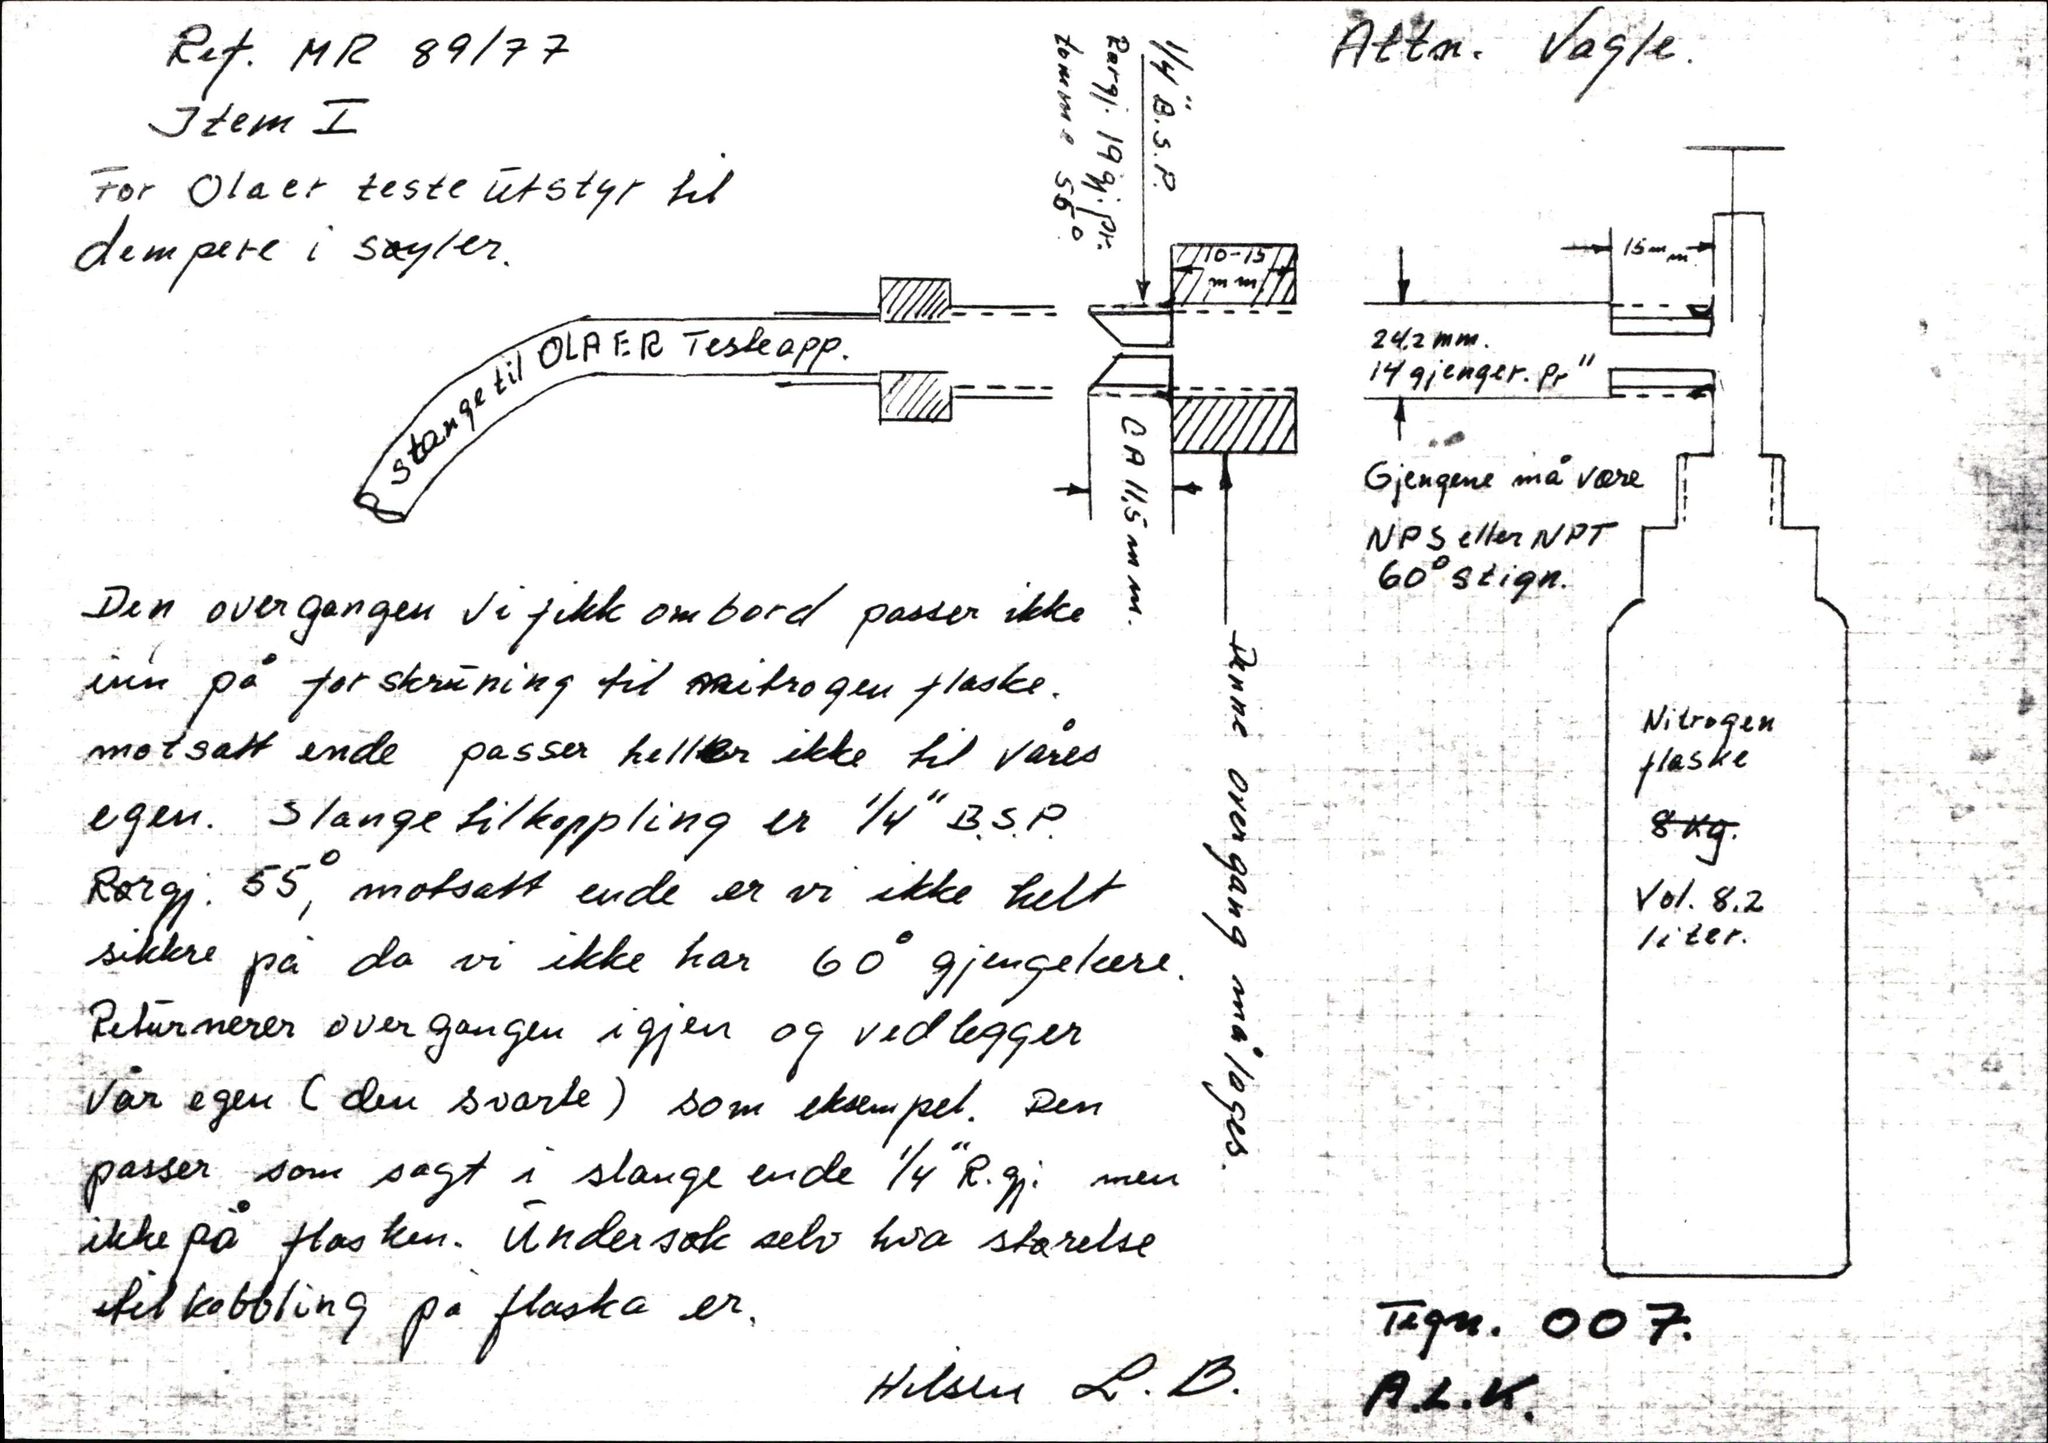 Ref. MR 89/77
Item I
For Olaer teste utstyr til
dempere i søyler.
Attn. Vagle.
1/4" B.S.P.
Rørgj. 19 gj. pr.
tomme 55°
10-15
mm
15mm
slange til OLAER Testeapp.
CA 11,5 mm.
24,2 mm.
14 gjenger. pr"
Gjengene må være
NPS eller NPT
60° stign.
Denne overgang må lages.
Den overgangen vi fikk ombord passer ikke
inn på forskruning til nitrogen flaske.
motsatt ende passer heller ikke til våres
egen. Slange tilkoppling er 1/4" B.S.P.
Rørgj. 55°, motsatt ende er vi ikke helt
sikkre på da vi ikke har 60° gjengelære.
Returnerer overgangen igjen og vedlegger
vår egen (den svarte) som eksempel. Den
passer som sagt i slange ende 1/4" R.gj. men
ikke på flasken. Undersøk selv hva størelse
tilkobbling på flaska er.
Hilsen L. B.
Nitrogen
flaske
8 kg.
Vol. 8.2
liter.
Tegn. 007.
A.L.K.